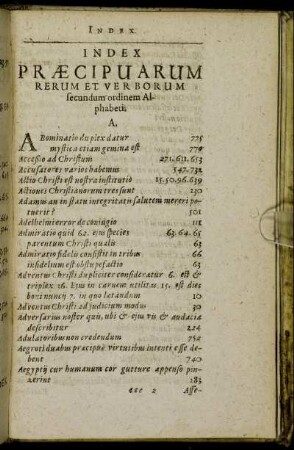 INDEX.
INDEX
PRÆCIPUARUM
RERUM ET VERBORUM
secundum ordinem Al-
phabeti.
A.
ABominatio duplex datur 775
mystica etiam gemina est 779
Accessio ad Christum 271.631.653
Accusatores varios habemus 547.731
Actio Christi est nostra institutio 15.50.96.639
Actiones Christianorum tres sunt 230
Adamus an in statu integritatis salutem mereri po-
tuerit? 501
Adelheimi error de conjugio 11
Admiratio quid 62. ejus species 63.64.65
parentum Christi qualis 63
Admiratio fidelis consistit in tribus 66
infidelium est obstupefactio 63
Adventus Christi dupliciter consideratur 6. est &
triplex 16. Ejus in carnem utilitas 15. est dies
bonus nunc 7. in quo laetandum 10
Adventus Christi ad judicium modus 30
Adversarius noster quis, ubi & ejus vis & audacia
describitur 224
Adulatoribus non credendum 750
Aegroti duabus praecipue virtutibus intenti esse de-
bent 740
Aegyptij cur humanum cor gutture appenso pin-
xerint 183
eee 2 Asse-